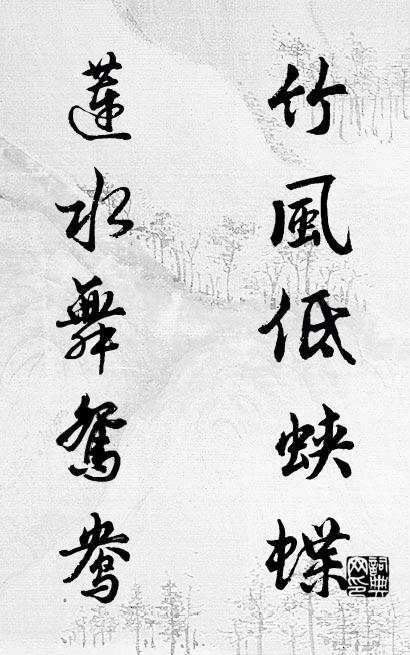 竹風低蛱蝶
蓮水舞鴛鴦
詞典网印